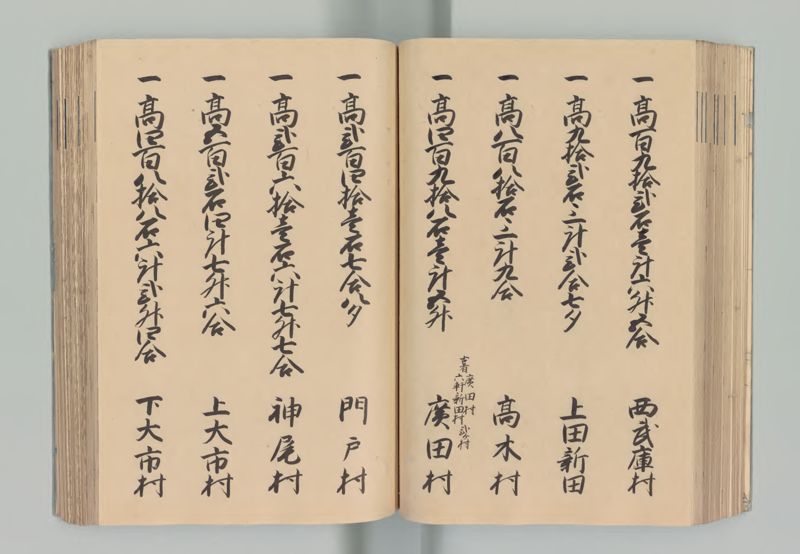 一高百九拾弐石壱斗六升五合 西武庫村
一高九拾弐石三斗弐合七夕 上田新田
一高八百八拾石三斗九合 高木村
一高四百九拾八石壱斗五升 廣田村
廣田村
六軒新田村
一高弐百四拾壱石七合八夕 門戸村
一高弐百六拾壱石六斗七升七合 神尾村
一高五百弐石四斗七升六合 上大市村
一高四百八拾八石六斗弐升四合 下大市村